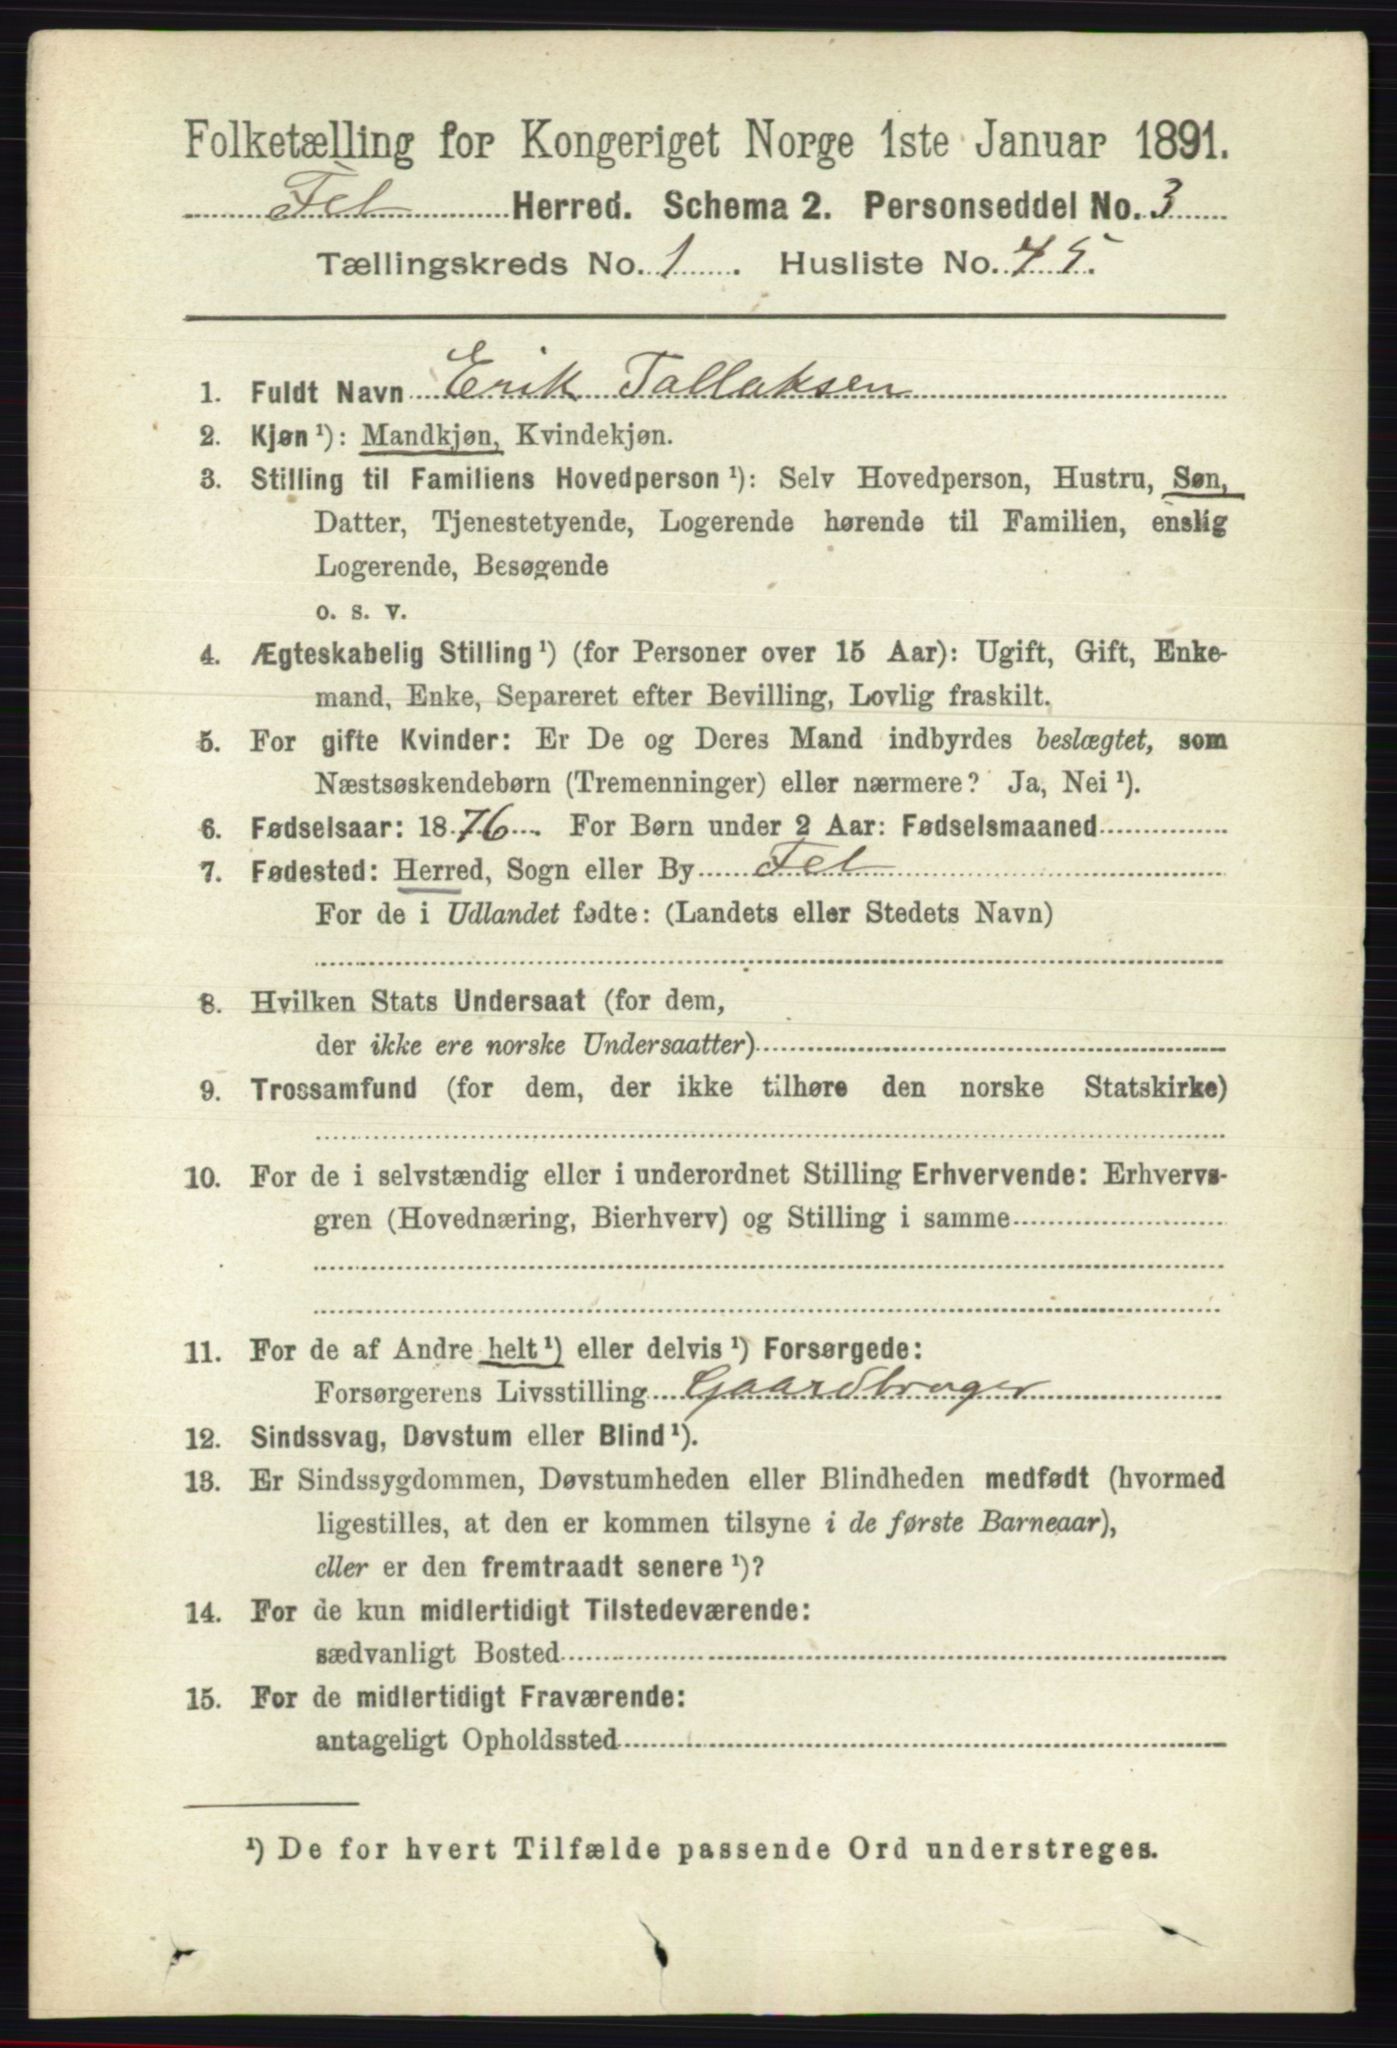 Folketælling for Kongeriget Norge 1ste Januar 1891.
Fet Herred. Schema 2. Personseddel No. 3
Tællingskreds No. 1. Husliste No. 45.
1. Fuldt Navn Erik Tallaksen
2. Kjøn ¹): Mandkjøn, Kvindekjøn.
3. Stilling til Familiens Hovedperson ¹): Selv Hovedperson, Hustru, Søn,
Datter, Tjenestetyende, Logerende hørende til Familien, enslig
Logerende, Besøgende
o. s. v.
4. Ægteskabelig Stilling ¹) (for Personer over 15 Aar): Ugift, Gift, Enke-
mand, Enke, Separeret efter Bevilling, Lovlig fraskilt.
5. For gifte Kvinder: Er De og Deres Mand indbyrdes beslægtet, som
Næstsøskendebørn (Tremenninger) eller nærmere? Ja, Nei ¹).
6. Fødselsaar: 1876. For Børn under 2 Aar: Fødselsmaaned
7. Fødested: Herred, Sogn eller By Fet
For de i Udlandet fødte: (Landets eller Stedets Navn)
8. Hvilken Stats Undersaat (for dem,
der ikke ere norske Undersaatter)
9. Trossamfund (for dem, der ikke tilhøre den norske Statskirke)
10. For de i selvstændig eller i underordnet Stilling Erhvervende: Erhvervs-
gren (Hovednæring, Bierhverv) og Stilling i samme
11. For de af Andre helt ¹) eller delvis ¹) Forsørgede:
Forsørgerens Livsstilling Gaardbruger
12. Sindssvag, Døvstum eller Blind ¹).
13. Er Sindssygdommen, Døvstumheden eller Blindheden medfødt (hvormed
ligestilles, at den er kommen tilsyne i de første Barneaar),
eller er den fremtraadt senere ¹)?
14. For de kun midlertidigt Tilstedeværende:
sædvanligt Bosted
15. For de midlertidigt Fraværende:
antageligt Opholdssted
¹) De for hvert Tilfælde passende Ord understreges.